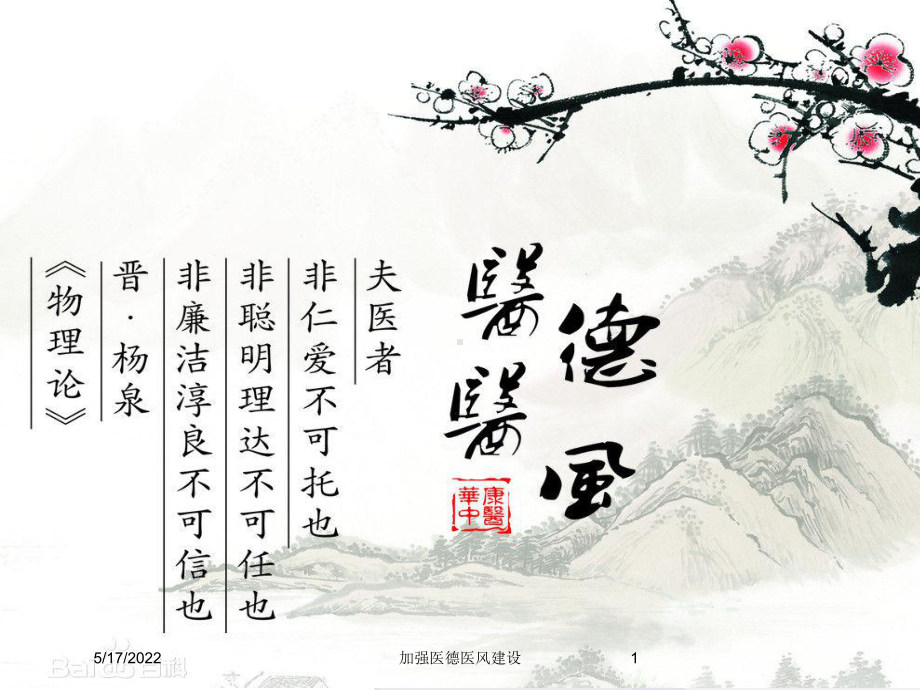 醫德
醫風
康醫
華中
夫医者
非仁爱不可托也
非聪明理达不可任也
非廉洁淳良不可信也
晋·杨泉
《物理论》
Bai 百科
5/17/2022
加强医德医风建设
1